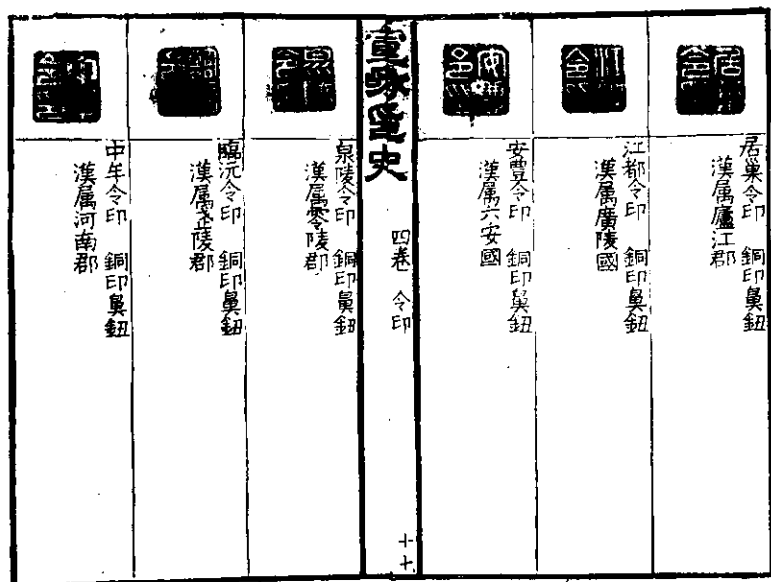 居巢令印　銅印鼻鈕
漢属廬江郡
江都令印　銅印鼻鈕
漢属廣陵國
安豐令印　銅印鼻鈕
漢属六安國
宣和印史
四卷　令印
十七
泉陵令印　銅印鼻鈕
漢属零陵郡
臨沅令印　銅印鼻鈕
漢属武陵郡
中牟令印　銅印鼻鈕
漢属河南郡